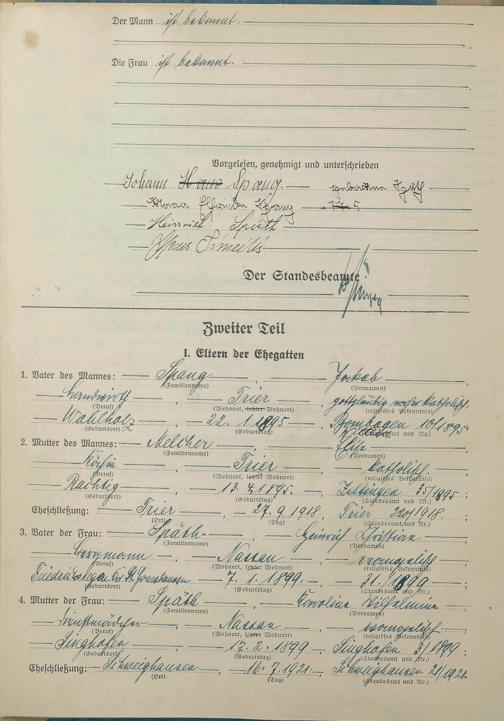 Der Mann ist bekannt.
Die Frau ist bekannt.
Vorgelesen, genehmigt und unterschrieben
Johann Hans Spang. geborene Späth
Spang
Heinrich Späth
Der Standesbeamte
Zweiter Teil
I. Eltern der Ehegatten
1. Vater des Mannes: Spang, Jakob
(Familienname) (Vornamen)
Landwirt, Trier, gottgläubig vorher katholisch.
(Beruf) (Wohnort, letzter Wohnort) (religiöses Bekenntnis)
Wahlholz, 22. 1. 1895 101/1895
(Geburtsort) (Geburtstag) (Standesamt und Nr.)
2. Mutter des Mannes: Melcher
(Familienname) (Vornamen)
Köchin, Trier, katholisch.
(Beruf) (Wohnort, letzter Wohnort) (religiöses Bekenntnis)
Rachtig, 13. 4. 1895. Zeltingen 35/1895.
(Geburtsort) (Geburtstag) (Standesamt und Nr.)
Eheschließung: Trier, 27. 9. 1918. Trier /1918.
(Ort) (Tag) (Standesamt und Nr.)
3. Vater der Frau: Späth, Heinrich Christian
(Familienname) (Vornamen)
Bergmann, Nassau, evangelisch
(Beruf) (Wohnort, letzter Wohnort) (religiöses Bekenntnis)
7. 1. 1899. 1899
(Geburtsort) (Geburtstag) (Standesamt und Nr.)
4. Mutter der Frau: Späth, Karoline Wilhelmine
(Familienname) (Vornamen)
Nassau, evangelisch
(Beruf) (Wohnort, letzter Wohnort) (religiöses Bekenntnis)
Singhofen, 17. 2. 1899 Singhofen 3/1899.
(Geburtsort) (Geburtstag) (Standesamt und Nr.)
Eheschließung: Schweighausen, 16. 7. 1921. Schweighausen 21/1921.
(Ort) (Tag) (Standesamt und Nr.)